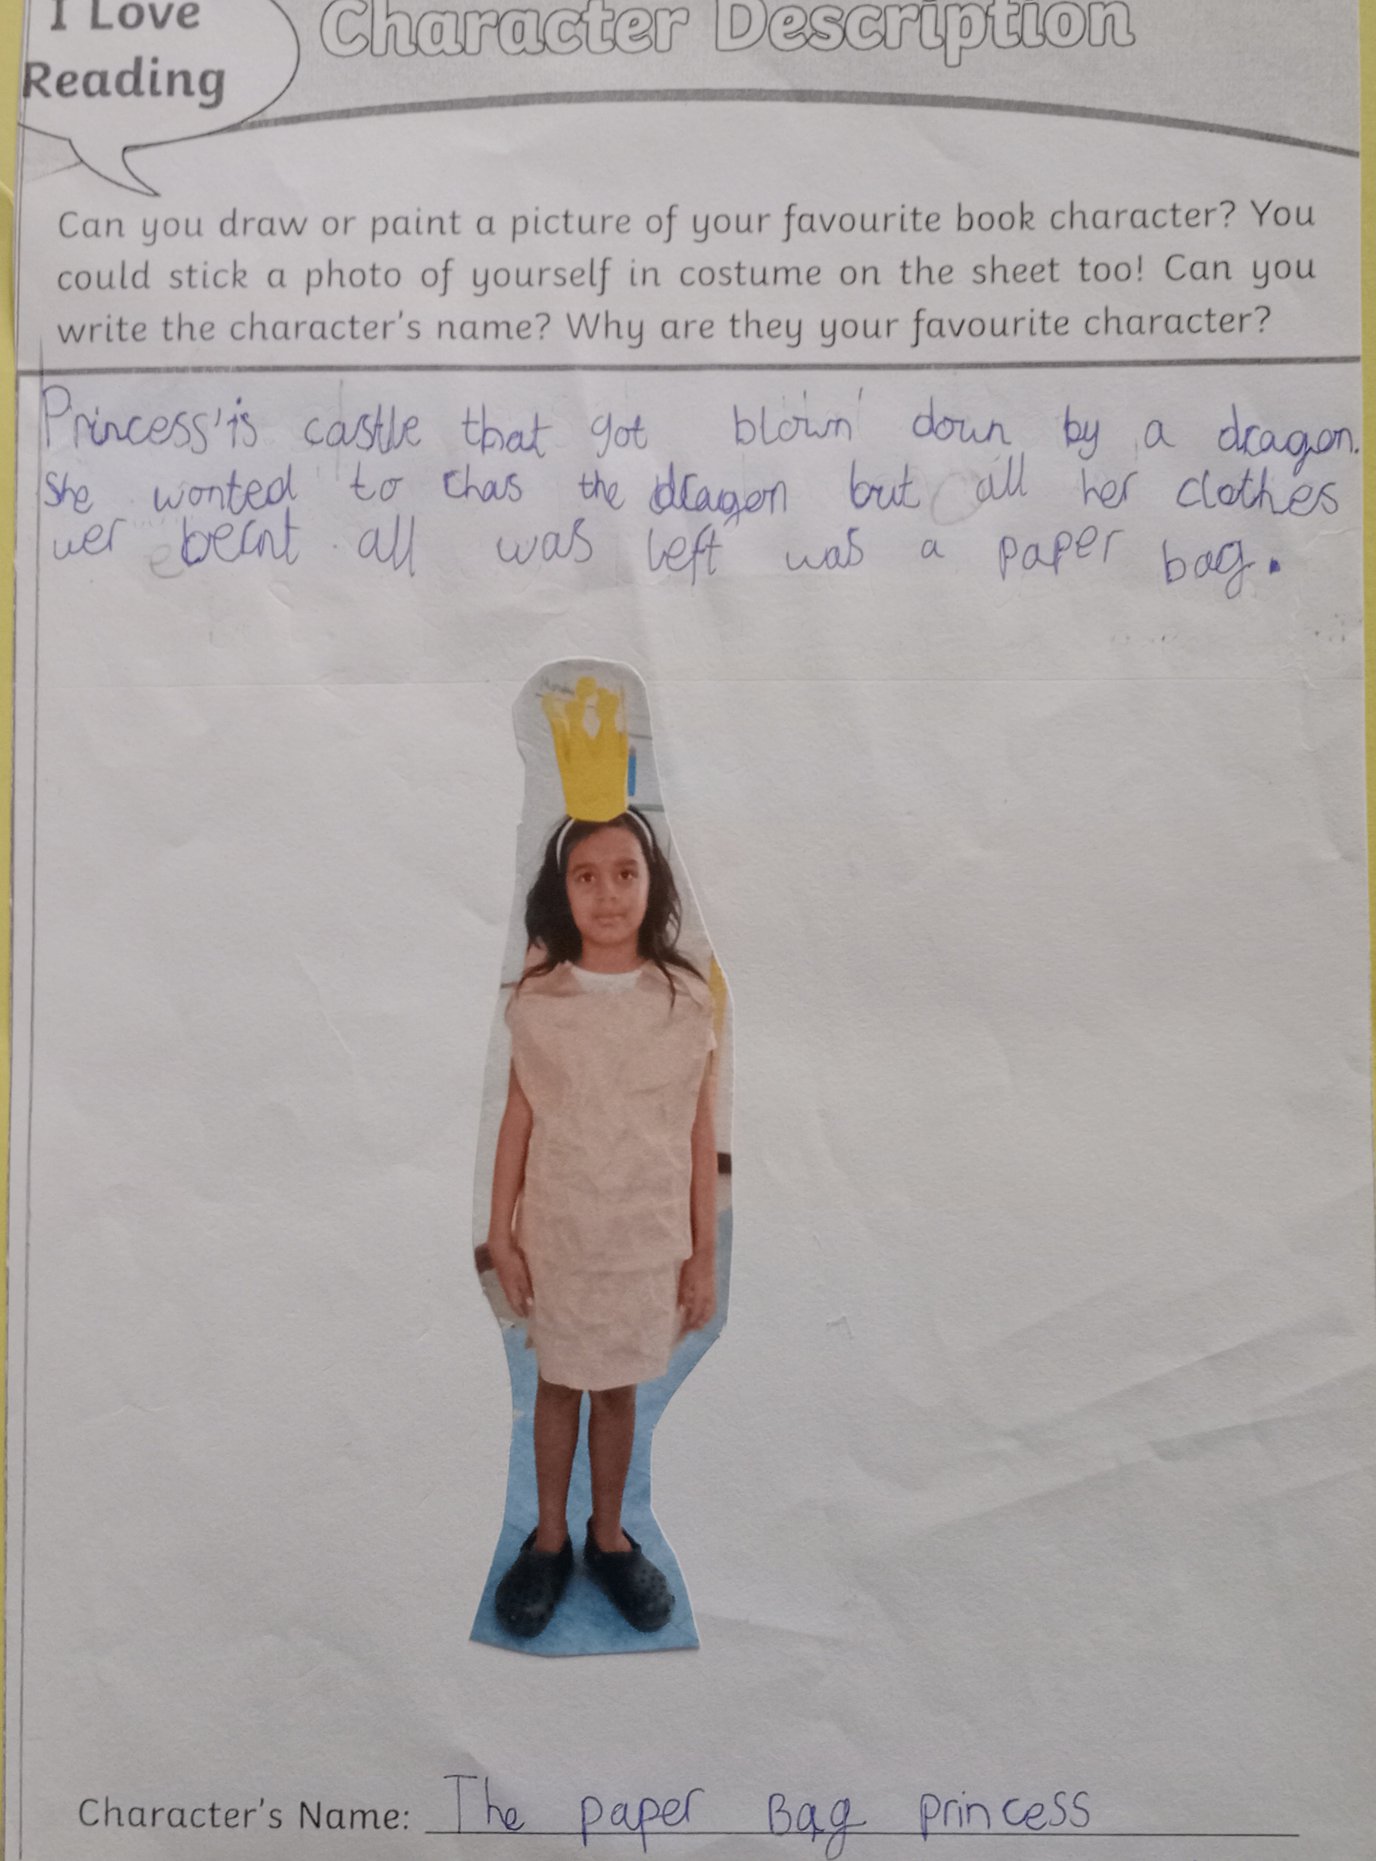 I Love
Reading
Character Description
Can you draw or paint a picture of your favourite book character? You
could stick a photo of yourself in costume on the sheet too! Can you
write the character's name? Why are they your favourite character?
Princess'is castle that got blown down by a dragon.
She wonted to chas the dragon but all her clothes
wer bernt all was left was a paper bag.
Character's Name: The paper Bag princess